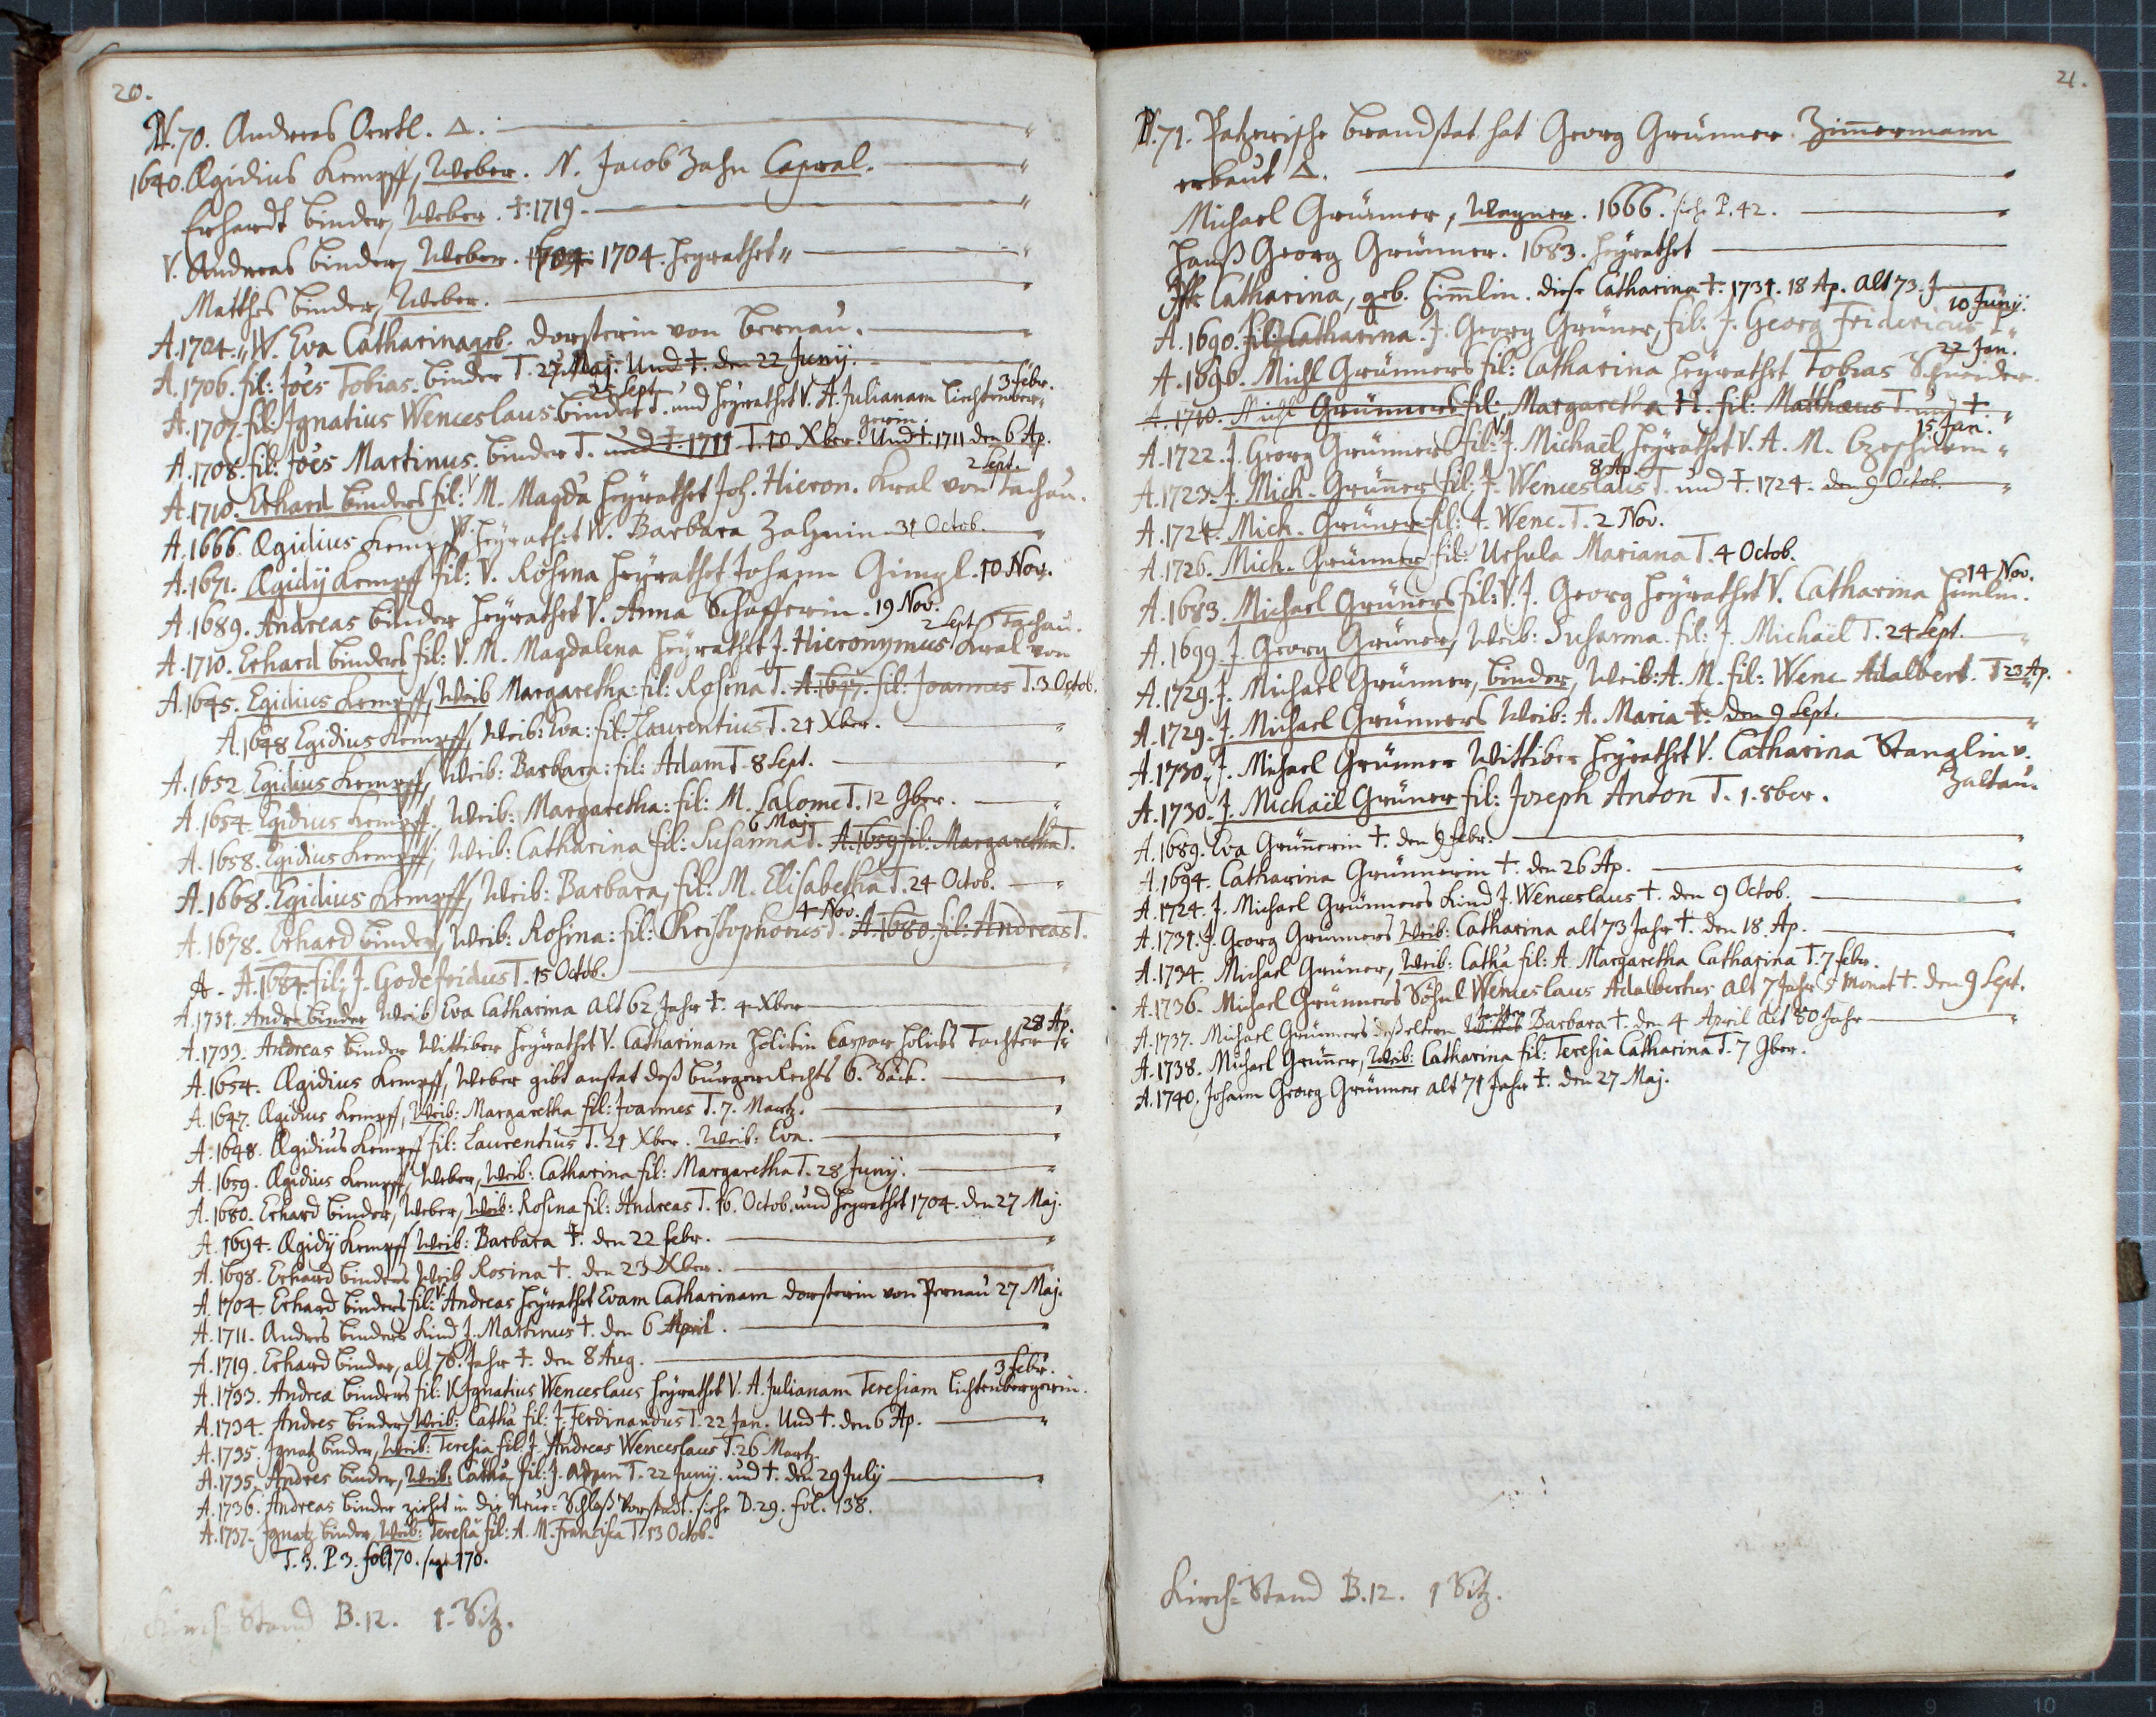 20.
N. 70. Andreas Oertl. Δ.
1640. Ægidius Kempff, Weber. N. Jacob Zahn Capral.
Erhardt Binder, Weber. †. 1719.
V. Andreas Binder, Weber. 1704. 1704. heyrathet "
Matthes Binder, Weber.
A. 1704. " W. Eva Catharina geb. Dorsterin von Bernau.
A. 1706. fil: Joes Tobias. Binder T. 27 Maj. Und †. den 22 Junij.
A. 1707. fil: Ignatius Wenceslaus Binder T. 25 Sept. und heyrathet V. A. Julianam Liechtenber= 3 Febr.
gerin
A. 1708. fil: Joes Martinus. Binder T. und †. 1711 T. 10 Xber Und †. 1711 den 6 Ap.
A. 1710. Erhard Binders fil: V M. Magda heyrathet Joh. Hieron. Kral von Tachau. 2 Sept.
A. 1666. Ægidius Kempff W. heyrathet W. Barbara Zahnin 31 Octob.
A. 1671. Ægidij Kempff fil: V. Rosina heyrathet Johann Gimpl. 10 Nov.
A. 1689. Andreas Binder heyrathet V. Anna Schafferin. 19 Nov.
A. 1710. Erhard Binders fil: V. M. Magdalena heyrathet J. Hieronymus Kral von Tachau. 2 Sept.
A. 1645. Egidius Kempff, Weib Margaretha: fil: Rosina T. A. 1647. fil: Joannes T. 3 Octob.
A. 1648 Egidius Kempff, Weib: Eva: fil: Laurentius T. 21 Xber.
A. 1652. Egidius Kempff, Weib: Barbara: fil: Adam T. 8 Sept.
A. 1654. Egidius Kempff. Weib: Margaretha: fil: M. Salome T. 12 9ber.
A. 1658. Egidius Kempff, Weib: Catharina fil: Susanna T. 6 Maj. A. 1659 fil: Margaretha T.
A. 1668. Egidius Kempff, Weib: Barbara, fil: M. Elisabetha T. 24 Octob.
A. 1678. Erhard Binder, Weib: Rosina: fil: Christophorus T. 4 Nov. A. 1680. fil: Andreas T.
A - A. 1684. fil: J. Godefridus T. 15 Octob.
A. 1731. Andre Binder Weib Eva Catharina alt 62 Jahr †. 4 Xber
A. 1733. Andreas Binder Wittiber heyrathet V. Catharinam Caspar Tochter 28 Ap.
A. 1654. Ægidius Kempff, Weber gibt anstat deß Burger Rechts 6. Säck.
A. 1647. Ægidius Kempff, Weib: Margaretha fil: Joannes T. 7. Martz.
A. 1648. Ægidius Kempff fil: Laurentius T. 21 Xber. Weib: Eva.
A. 1659. Ægidius Kempff, Weber, Weib: Catharina fil: Margaretha T. 28 Junij.
A. 1680. Erhard Binder, Weber, Weib: Rosina fil: Andreas T. 16. Octob. und heyrathet 1704. den 27 Maj.
A. 1694. Ægidij Kempff Weib: Barbara †. den 22 Febr.
A. 1698. Erhard Binders Weib Rosina †. den 23 Xber.
A. 1704. Erhard Binders fil: V. Andreas heyrathet Evam Catharinam Dorsterin von Pernau 27 Maj.
A. 1711. Andres Binders Kind J. Martinus †. den 6 April.
A. 1719. Erhard Binder, alt 78. Jahr †. den 8 Aug.
A. 1733. Andrea Binders fil: V. Ignatius Wenceslaus heyrathet V. A. Julianam Teresiam Lichtenbergerin. 3 Febr.
A. 1734. Andres Binder, Weib: Catha fil: J. Ferdinandus T. 22 Jan. Und †. den 6 Ap.
A. 1735. Ignatz Binder, Weib: Teresia fil: J. Andreas Wenceslaus T. 26 Martz.
A. 1735. Andres Binder, Weib: Catha, fil: J. Adam T. 22 Junij. und †. den 29 July
A. 1736. Andreas Binder ziehet in die Neue= Schloß Vorstadt. siehe D. 29. fol. 138.
A. 1737. Ignatz Binder, Weib: Teresia fil: A. M. Francisca T. 13 Octob.
T. 3. P. 3. fol 170. pag. 170.
Kirch= Stand B. 12. 1. Sitz.
21.
N. 71. Patzerische Brandstat hat Georg Grünner Zimmermann
erbaut Δ.
Michael Grünner, Wagner. 1666. siehe P. 42.
Hanß Georg Grünner. 1683. heyrathet
Catharina, geb. Himlin. diese Catharina †. 1731. 18 Ap. alt 73. J
A. 1690. fil: Catharina. J. Georg Grüner, fil: J. Georg Fridericus T. 10 Junij.
A. 1696. Michl Grünners fil: Catharina heyrathet Tobias Schneider. 22 Jan.
A. 1710. Michl Grünners fil: Margaretha H. fil: Matthæus T. und †.
A. 1722. J. Georg Grünners fil: V. J. Michael heyrathet V. A. M. 15 Jan.
A. 1723. J. Mich. Grünner fil: J. Wenceslaus T. 8 Ap. und †. 1724. den 9 Octob.
A. 1724. Mich. Grüner fil: J. Wenc. T. 2 Nov.
A. 1726. Mich. Grünner fil: Ursula Mariana T. 4 Octob.
A. 1683. Michael Grüners fil: V. J. Georg heyrathet V. Catharina Himlin. 14 Nov.
A. 1699. J. Georg Grüner, Weib: Susanna fil: J. Michaël T. 24 Sept.
A. 1729. J. Michael Grünner, Binder, Weib: A. M. fil: Wenc. Adalbert. T 23 Ap.
A. 1729. J. Michael Grünners Weib: A. Maria †. den 9 Sept.
A. 1730. J. Michael Grünner Wittiber heyrathet V. Catharina Stanglin v.
Zaltau.
A. 1730. J. Michaël Grüner fil: Joseph Anton T. 1. 8ber.
A. 1689. Eva Grünnerin †. den 9 Febr.
A. 1694. Catharina Grünnerin †. den 26 Ap.
A. 1724. J. Michael Grünners Kind J. Wenceslaus †. den 9 Octob.
A. 1731. J. Georg Grünners Weib: Catharina alt 73 Jahr †. den 18. Ap.
A. 1734. Michael Grüner, Weib: Catha fil: A. Margaretha Catharina T. 7 Febr.
A. 1736. Michael Grünners Söhnl Wenceslaus Adalbertus alt 7 Jahr 5 Monat †. den 9 Sept.
A. 1737. Michael Grünners deß eltern Tochter Barbara †. den 4 April alt 80 Jahr
A. 1738. Michael Grünner, Weib: Catharina fil: Teresia Catharina T. 7 9ber.
A. 1740. Johann Georg Grünner alt 71 Jahr †. den 27 Maj.
Kirch= Stand B. 12. 1 Sitz.
2 3 4 5 6 7 8 9 10